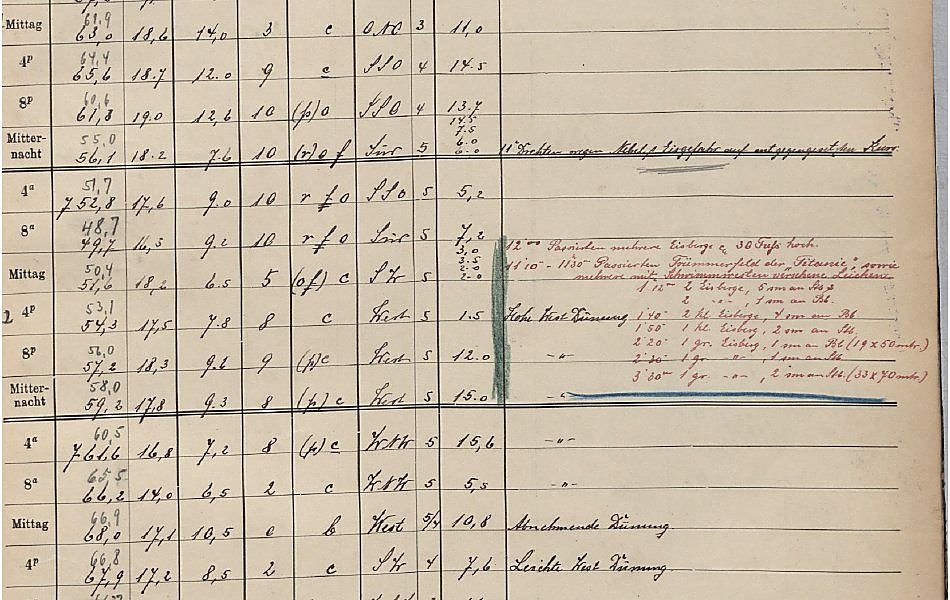 61,9
Mittag 63,0 18,6 14,0 3 c ONO 3 11,0
64,4
4p 65,6 18.7 12.0 9 c SSO 4 14.5
60,6
8p 61,8 19.0 12,6 10 (p) o SSO 4 13.7
14.5
7.5
55,0 6.0
Mitter-
nacht 56,1 18.2 7.6 10 (r) o f Süd 5 6.0 Drehten wegen Nebel & Eisgefahr auf entgegengesetzten Kurs
51,7
4a 752,8 17,6 9.0 10 r f o SSO 5 5,2
48,7
8a 49,7 16,5 9.2 10 r f o Süd 5 7,2
3,0 12 00 Passierten mehrere Eisberge c. 30 Fuss hoch.
3.5
50,4 2.0 11 10 - 11 30 Passierten Trümmerfeld der "Titanic", sowie
Mittag 51,6 18,2 6.5 5 (of) c SW 5 2.0 mehrere mit Schwimmwesten versehene Leichen
1 12 2 Eisberge, 5 sm an Stb
2 -"-, 1 sm an Bb.
53,1
4p 54,3 17,5 7.8 8 c West 5 1.5 Hohe West Dünung 1 40 2 kl. Eisberge, 4 sm an Bb
1 50 1 kl. Eisberg, 2 sm an Stb.
2 20 1 gr. Eisberg, 1 sm an Bb (19 x 50 mtr.)
56,0
8p 57,2 18,3 9.6 9 (p) c West 5 12.0 -"- 2 30 1 gr. -"-, 1 sm an Stb.
3 30 1 gr. -"-, 2 sm an Stb. (33 x 70 mtr.)
58,0
Mitter-
nacht 59,2 17,8 9.3 8 (p) c West 5 15.0 -"-
60,5
4a 761,6 16,8 7,2 8 (p) c WNW 5 15,6 -"-
65,5
8a 66,2 14,0 6,5 2 c WNW 5 5,5 -"-
66,9
Mittag 68,0 17,1 10,5 b West 5/4 10,8 Abnehmende Dünung.
66,8
4p 67,9 17,2 8,5 2 c SW 4 7,6 Leichte West Dünung.